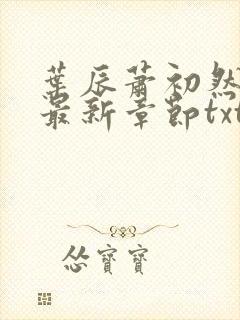 葉辰蕭初然
最新章節txt
怂寶寶